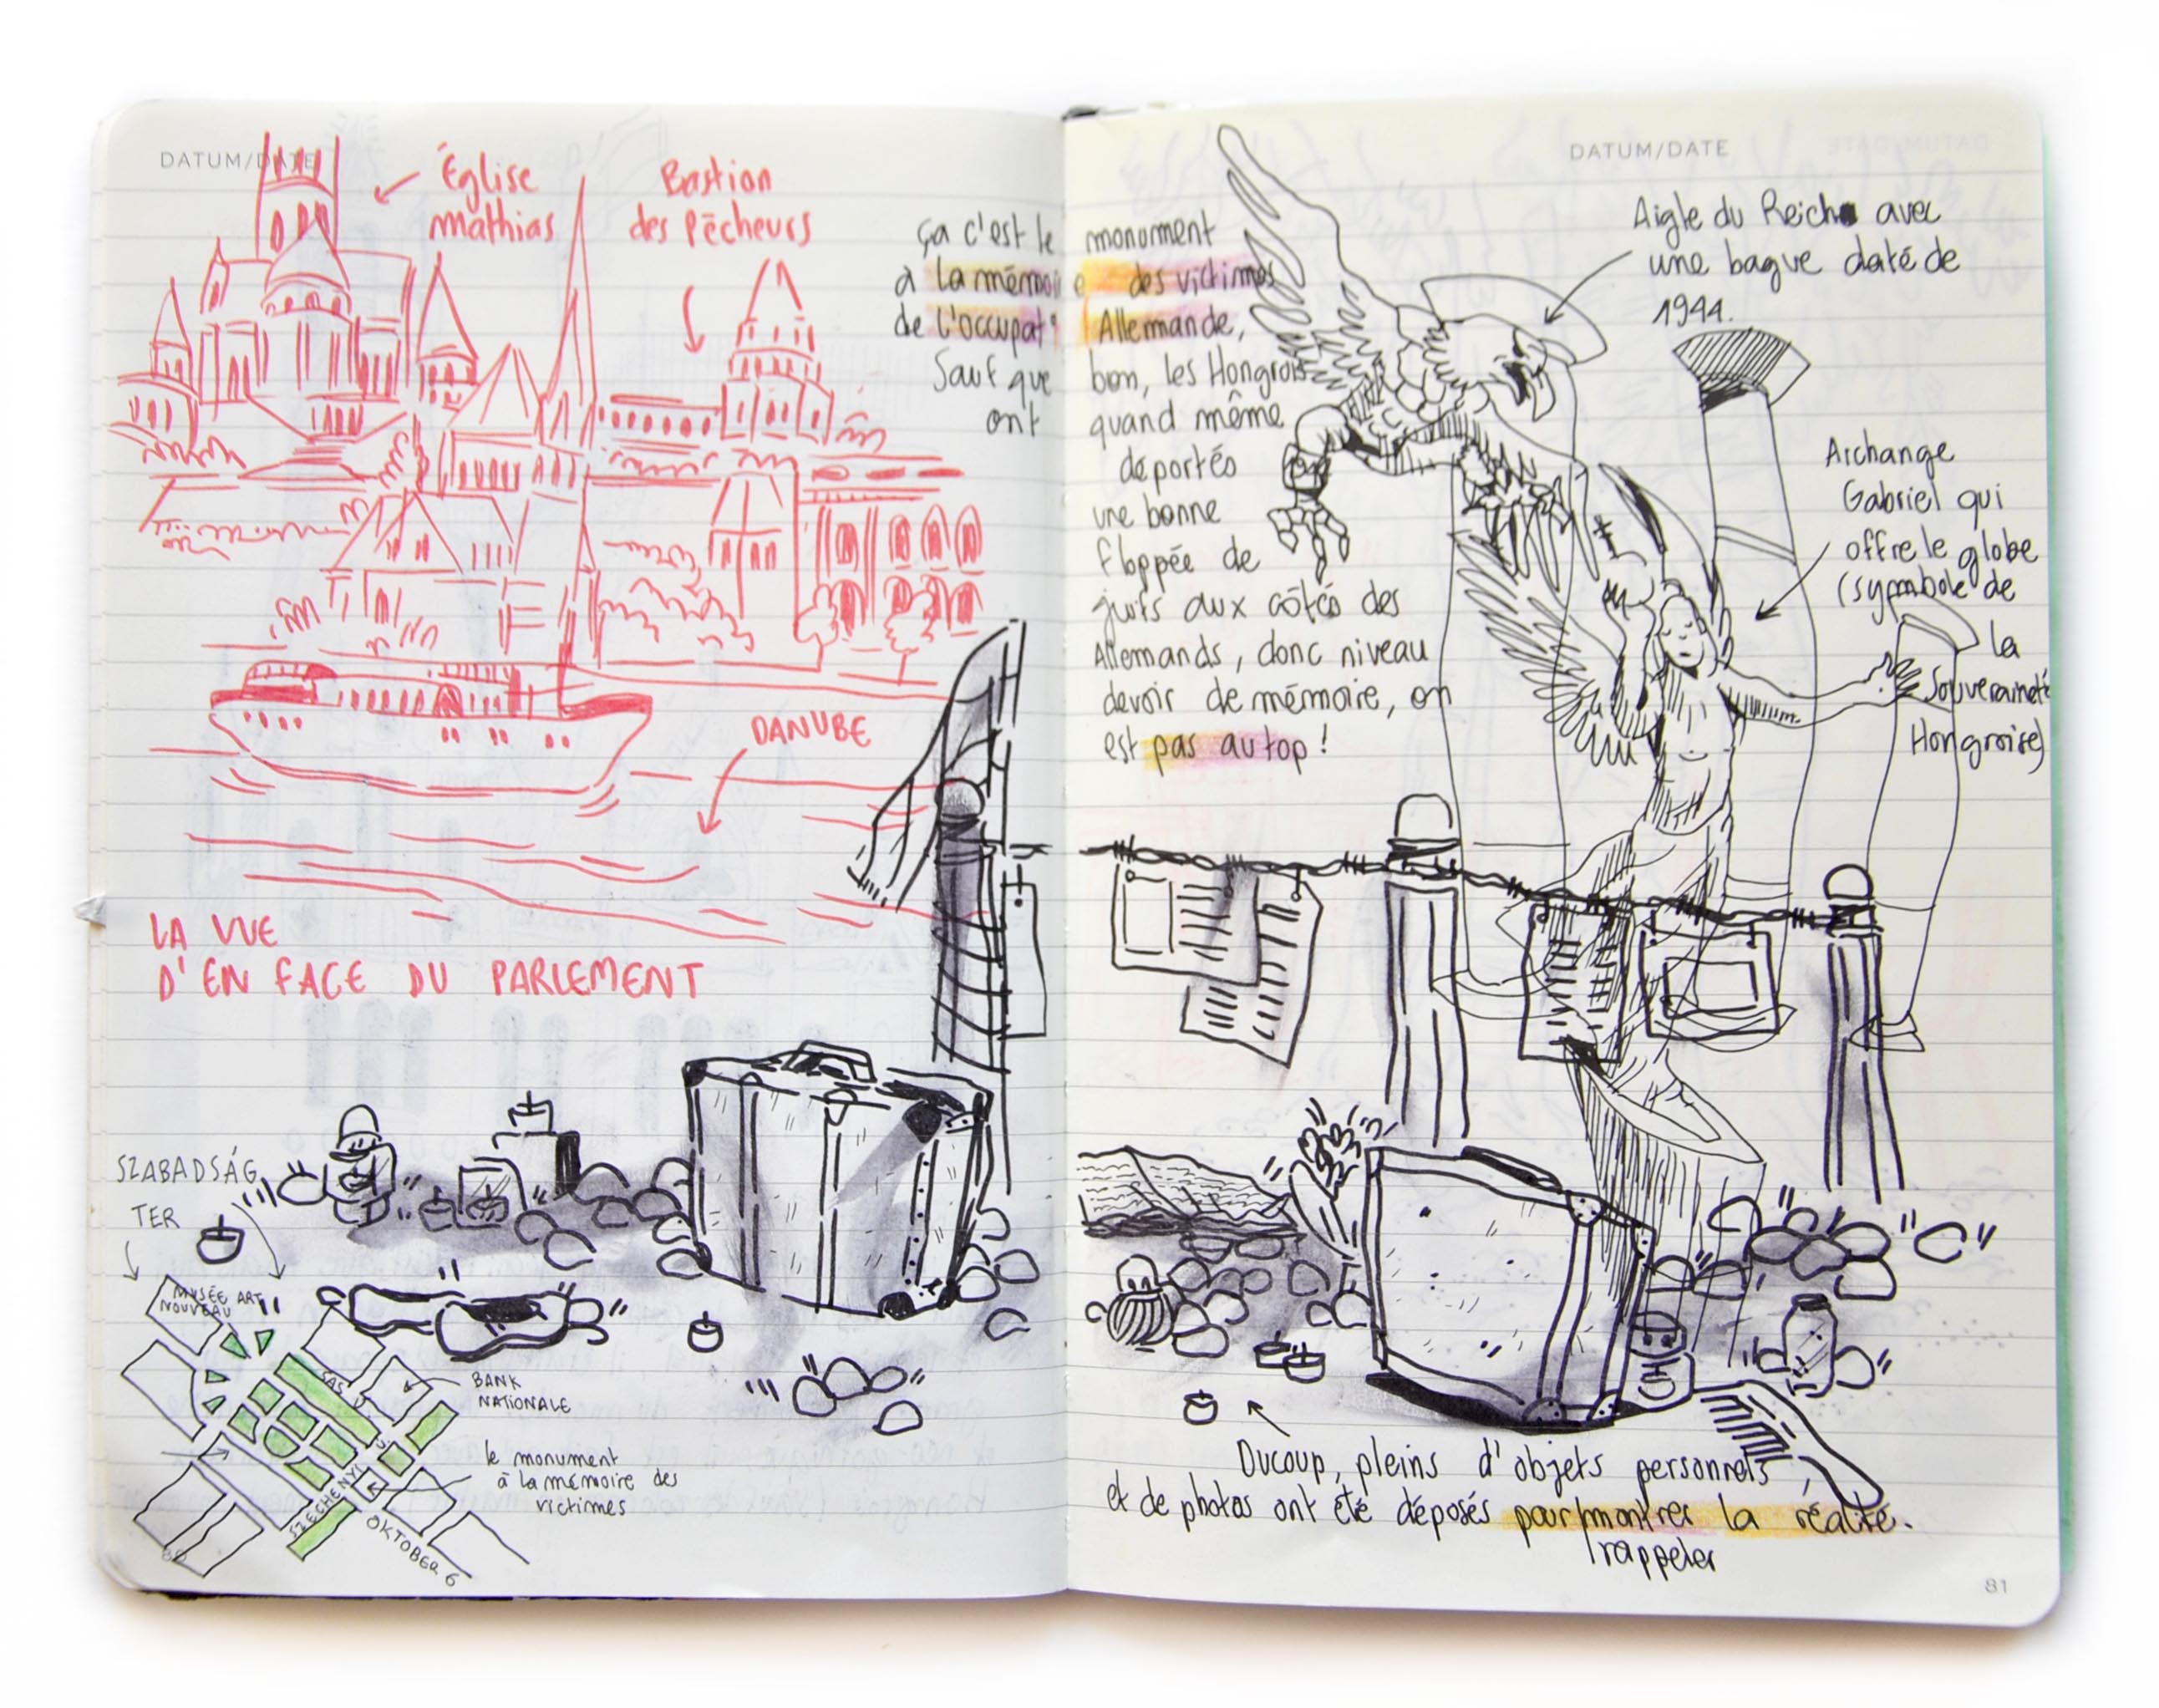 DATUM/DATE
Église
mathias
Bastion
des Pêcheurs
DANUBE
LA VUE
D'EN FACE DU PARLEMENT
SZABADSÁG
TER
MUSÉE ART
NOUVEAU
SAS U.
BANK
NATIONALE
le monument
à la mémoire des
victimes
SZECHENYI
OKTOBER 6
80
DATUM/DATE
ça c'est le monument
à la mémoire des victimes
de l'occupat° Allemande,
Sauf que bon, les Hongrois
ont quand même
déportés
une bonne
floppée de
juifs aux côtés des
Allemands, donc niveau
devoir de mémoire, on
est pas au top !
Aigle du Reich avec
une bague daté de
1944.
Archange
Gabriel qui
offre le globe
(symbole de
la
Souveraineté
Hongroise)
Ducoup, pleins d'objets personnels
et de photos ont été déposés pour montrer la réalité.
rappeler
81